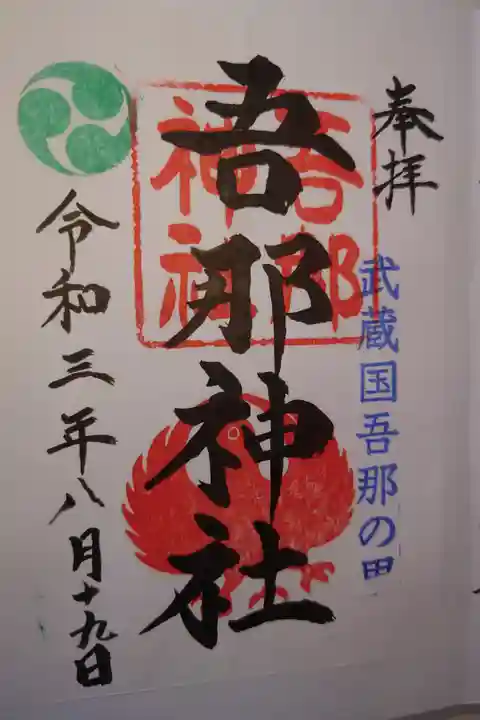 奉拝
武蔵国吾那の里
吾那神社
吾那
神社
令和三年八月十九日